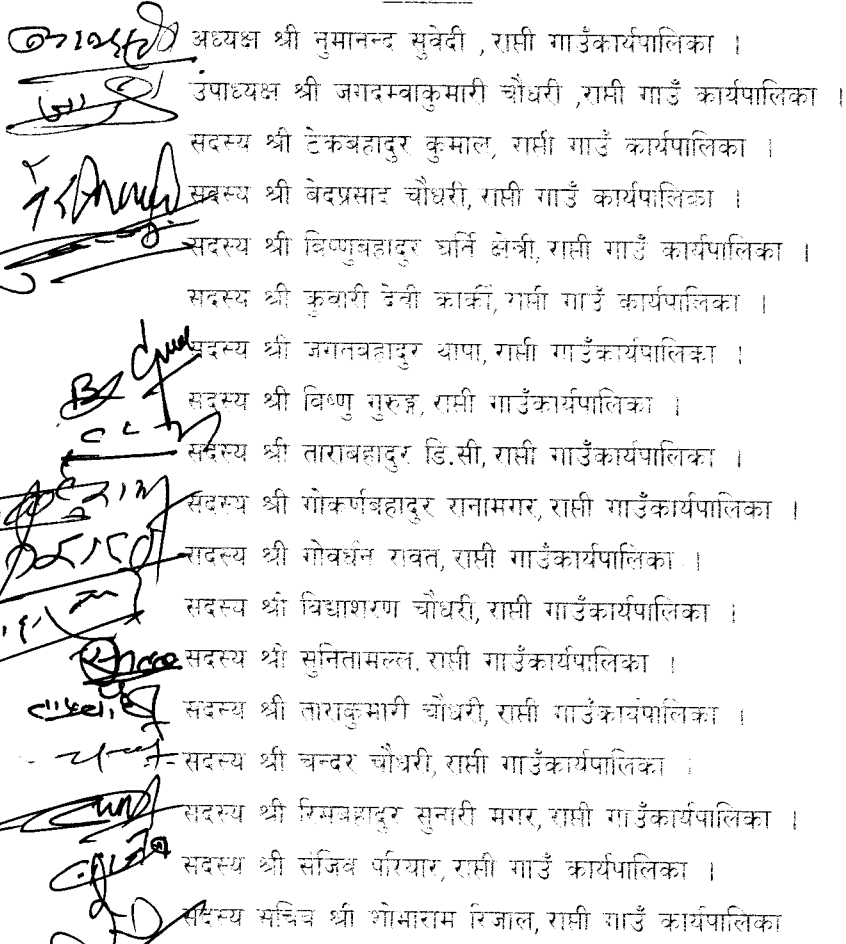 अध्यक्ष श्री नुमानन्द सुवेदी ,राप्ती गाउँकार्यपालिका ।
उपाध्यक्ष श्री जगदम्वाकुमारी चौधरी ,राप्ती गाउँ कार्यपालिका ।
सदस्य श्री टेकबहादुर कुमाल, राप्ती गाउँ कार्यपालिका ।
सदस्य श्री बेदप्रसाद चौधरी, राप्ती गाउँ कार्यपालिका ।
सदस्य श्री बिष्णुबहादुर घर्ति क्षेत्री, राप्ती गाउँ कार्यपालिका ।
सदस्य श्री कुवारी देवी कार्की, राप्ती गाउँ कार्यपालिका ।
सदस्य श्री जगतबहादुर थापा, राप्ती गाउँकार्यपालिका ।
सदस्य श्री बिष्णु गुरुङ्ग, राप्ती गाउँकार्यपालिका ।
सदस्य श्री ताराबहादुर डि.सी, राप्ती गाउँकार्यपालिका ।
सदस्य श्री गोकर्णबहादुर रानामगर, राप्ती गाउँकार्यपालिका ।
सदस्य श्री गोवर्धन रावत, राप्ती गाउँकार्यपालिका ।
सदस्य श्री विद्याशरण चौधरी, राप्ती गाउँकार्यपालिका ।
सदस्य श्री सुनितामल्ल, राप्ती गाउँकार्यपालिका ।
सदस्य श्री ताराकुमारी चौधरी, राप्ती गाउँकार्यपालिका ।
सदस्य श्री चन्दर चौधरी, राप्ती गाउँकार्यपालिका ।
सदस्य श्री रिमबहादुर सुनारी मगर, राप्ती गाउँकार्यपालिका ।
सदस्य श्री संजिब परियार, राप्ती गाउँ कार्यपालिका ।
सदस्य सचिब श्री शोभाराम रिजाल, राप्ती गाउँ कार्यपालिका